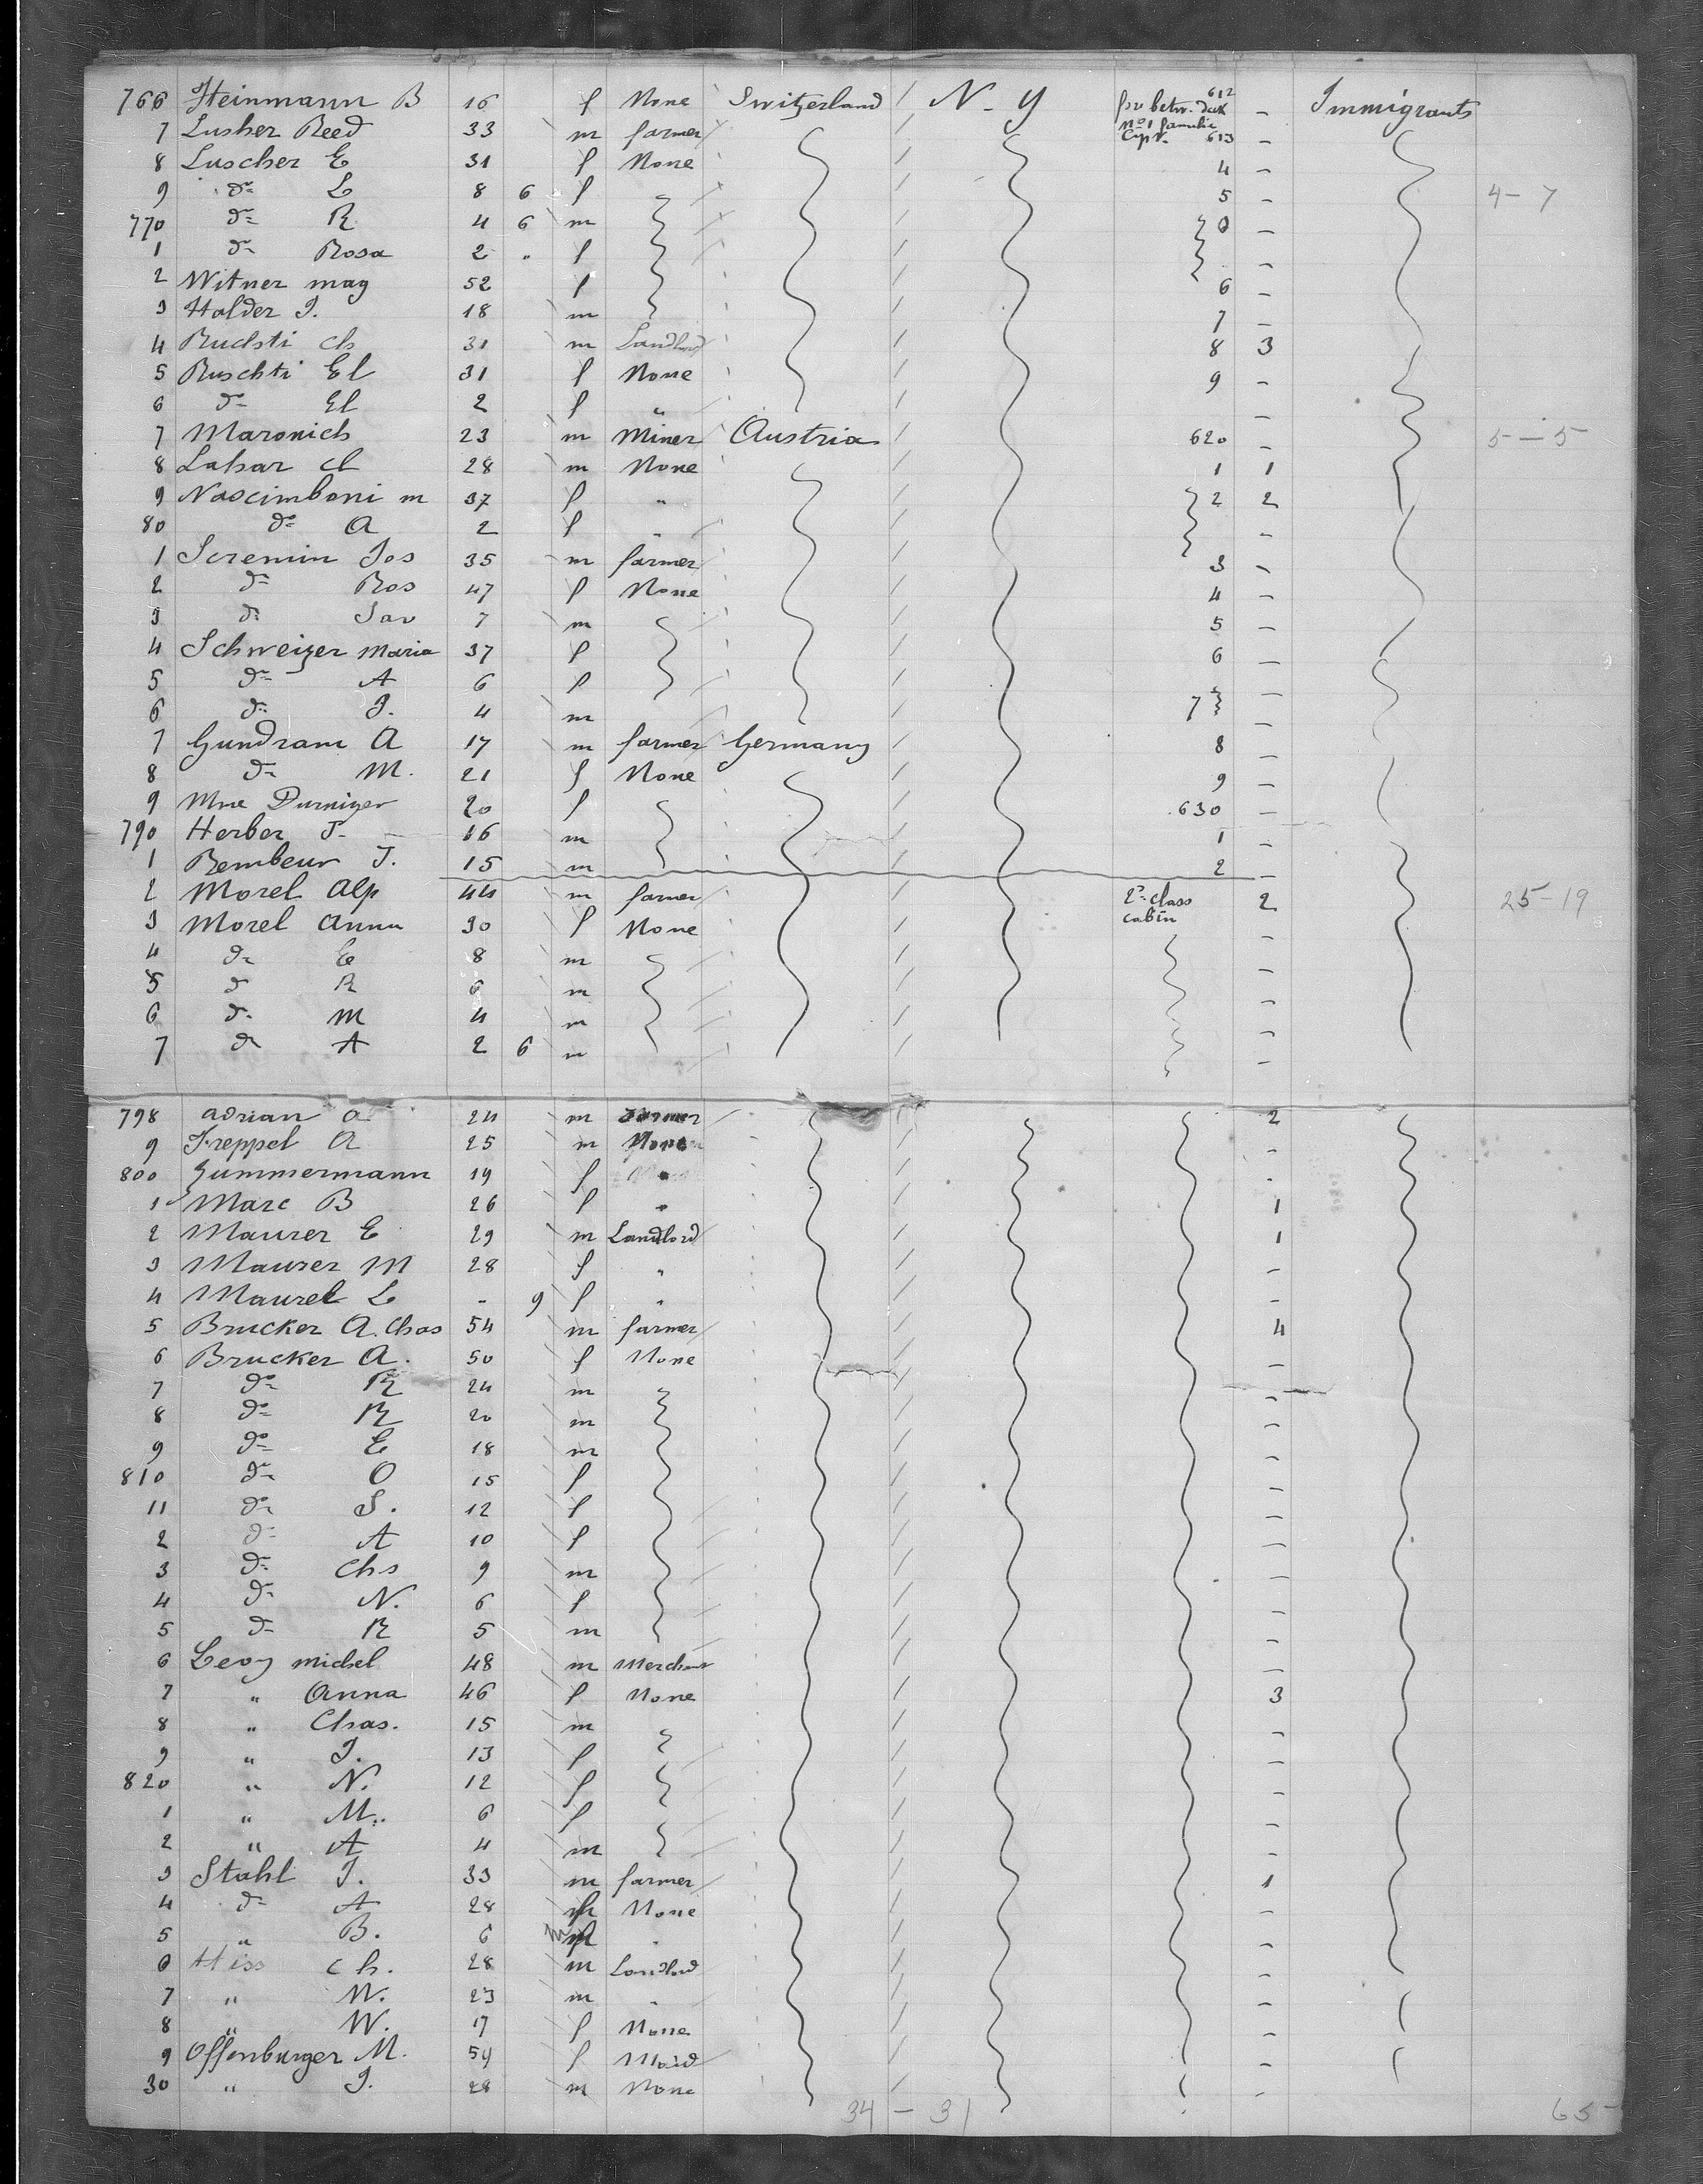 766 Heinmann B 16 f None Switzerland N-Y 612 for betw. deck - Immigrants
7 Lusher Reed 33 m farmer No 1 familie Cpt. 613 -
8 Luscher E 31 f None 4 -
9 do L 8 6 f 5 - 4-7
770 do R 4 6 m 0 -
1 do Rosa 2 " f -
2 Witner mag 52 f 6 -
3 Halder J. 18 m 7 -
4 Ruchsti ch 31 m Landlord 8 3
5 Ruschti El 31 f None 9 -
6 do El 2 f " -
7 Maronich 23 m Miner Austria 620 - 5-5
8 Lahar cl 28 m None 1 1
9 Nascimboni m 37 f " 2 2
80 do A 2 f " -
1 Scremin Jos 35 m farmer 3 -
2 do Ros 47 f None 4 -
3 do Sav 7 m 5 -
4 Schweizer Maria 37 f 6 -
5 do A 6 f -
6 do J. 4 m 7 -
7 Gundram A 17 m farmer Germany 8 -
8 do M. 21 f None 9 -
9 Mne Durnizer 20 f 630 -
790 Herber J- 16 m 1 -
1 Rembeur J. 15 m 2 -
2 Morel Alp 44 m farmer 2o class cabin 2 25-19
3 Morel Anna 30 f None -
4 do E 8 m -
5 do R 6 m -
6 do M 4 m -
7 do A 2 6 m -
798 Adrian a 24 m Farmer 2
9 Freppel A 25 m None -
800 Zummermann 19 f " -
1 Marc B 26 f " 1
2 Maurer E 29 m Landlord 1
3 Maurer M 28 f " -
4 Maurel L - 9 f " -
5 Brucker A. Chas 54 m farmer 4
6 Brucker A. 50 f None -
7 do R 24 m -
8 do R 20 m -
9 do E 18 m -
810 do O 15 f -
11 do S. 12 f -
2 do A 10 f -
3 do Chs 9 m -
4 do N. 6 f -
5 do R 5 m -
6 Levy michel 48 m Merchant -
7 " Anna 46 f None 3
8 " Chas. 15 m -
9 " J. 13 f -
820 " N. 12 f -
1 " M. 6 f -
2 " A 4 m -
3 Stahl J. 33 m farmer 1
4 do A 28 None -
5 " B. 6 m " -
6 Hiss ch. 28 m Landlord -
7 " N. 23 m " -
8 " W. 17 f None -
9 Offenburger M. 54 f Maid -
30 " J. 28 m None -
34 - 31 65-